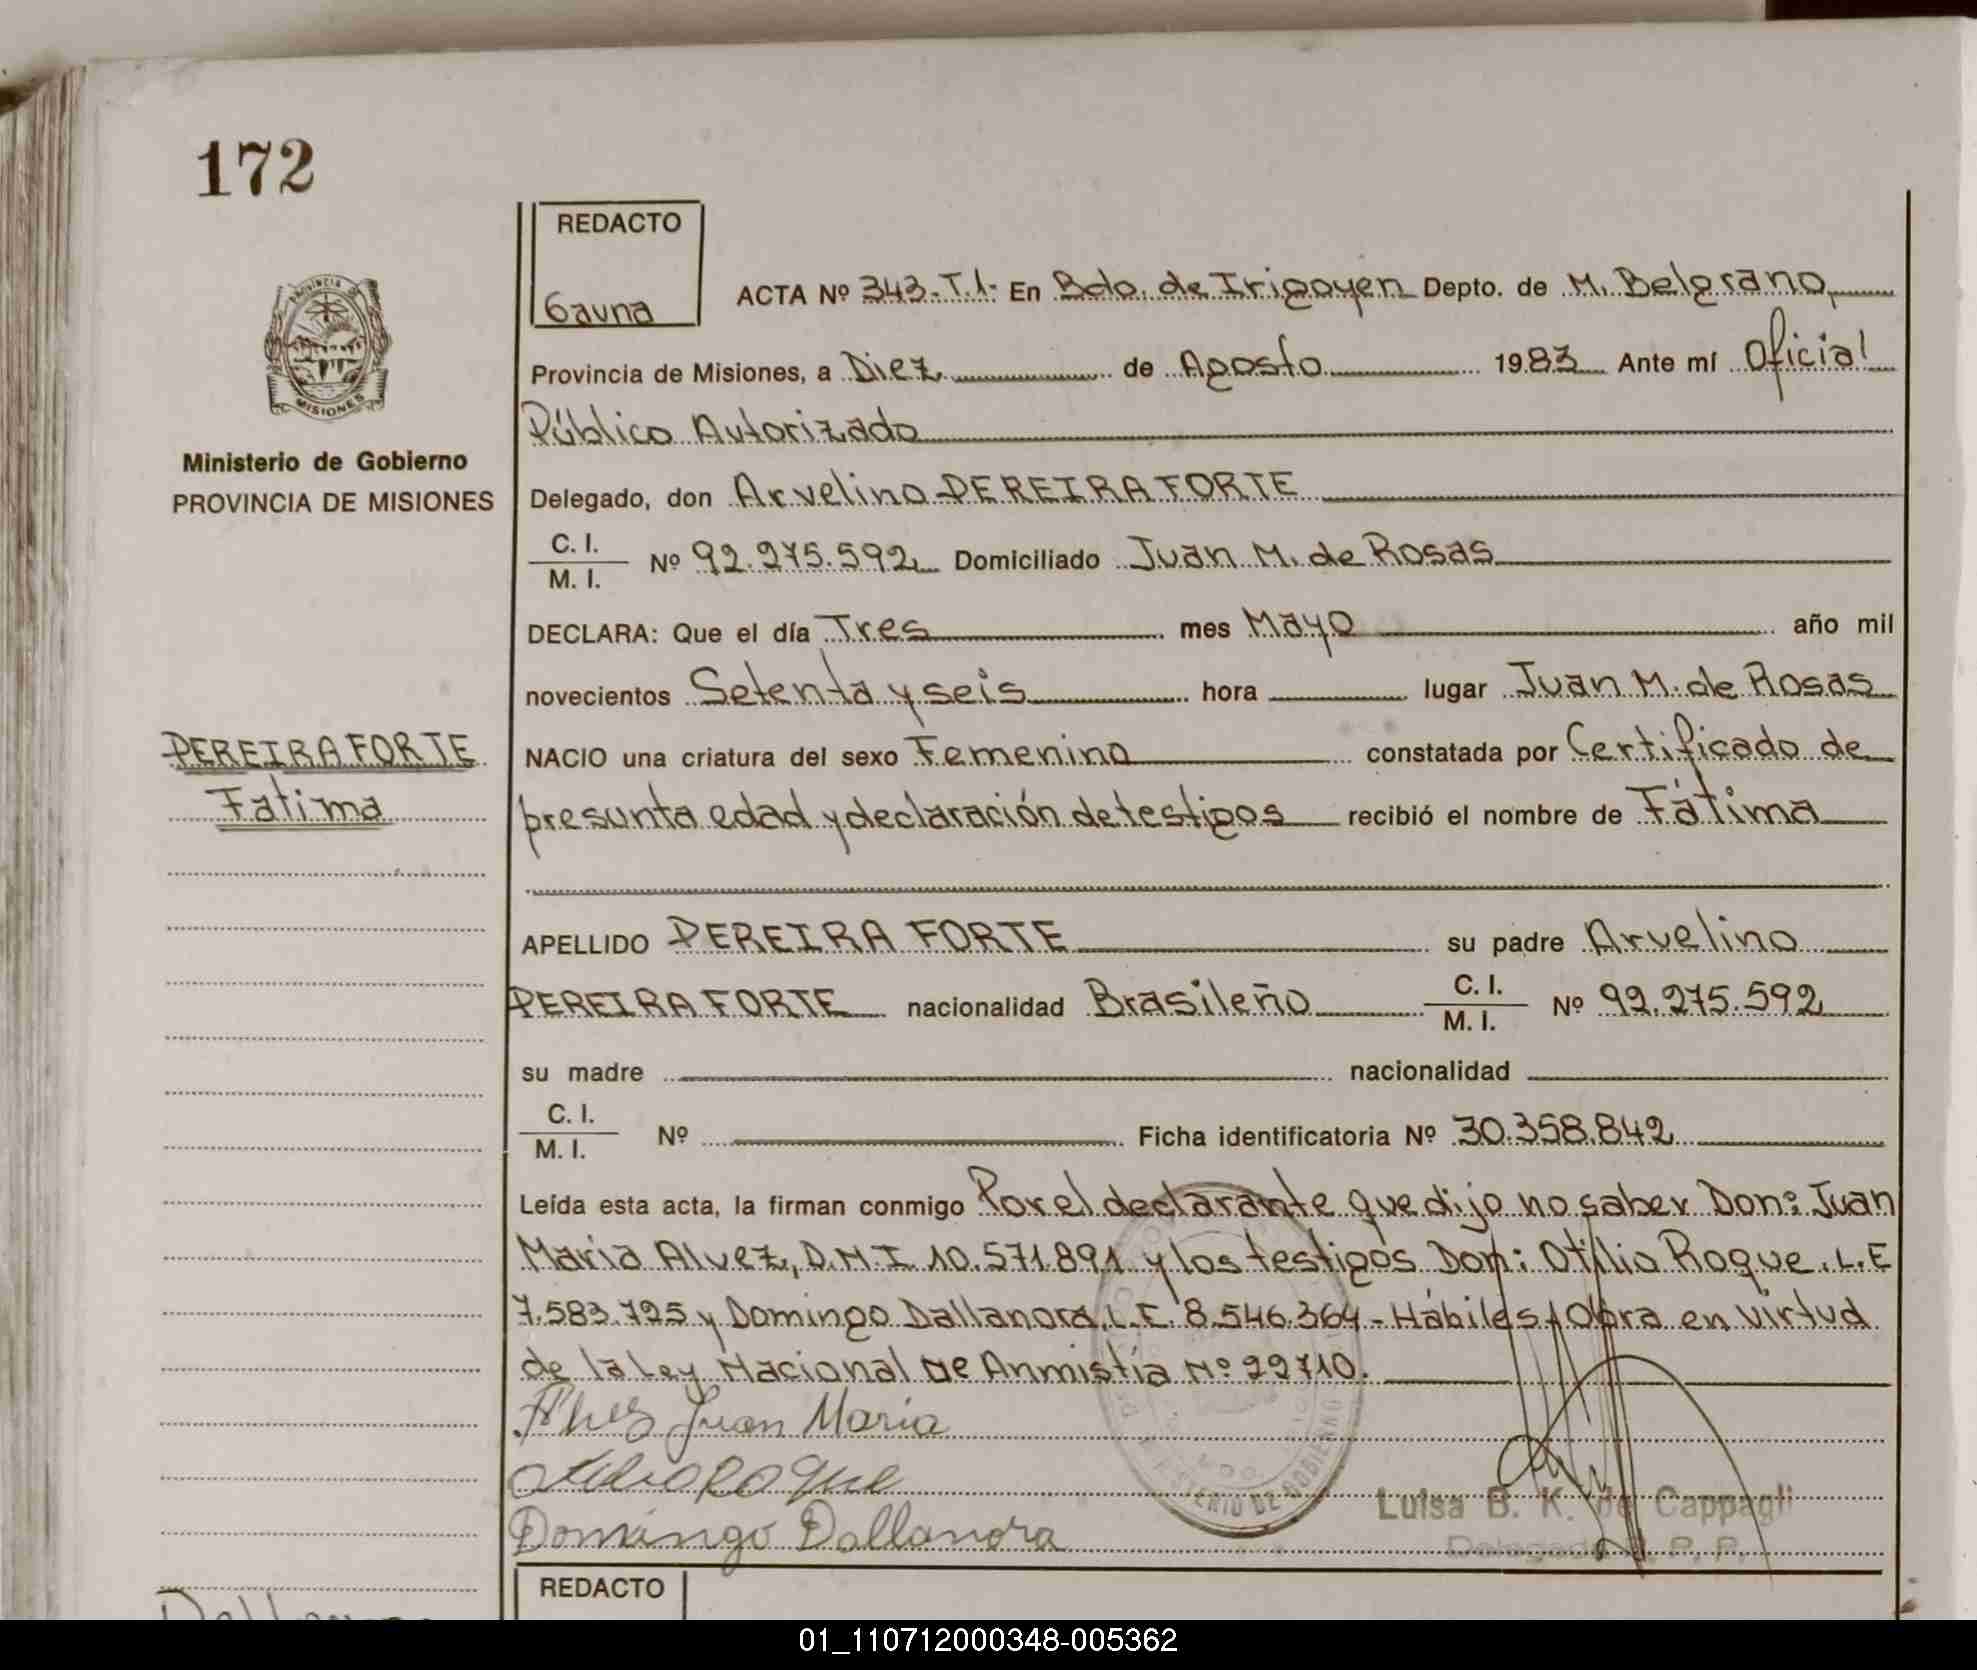 172
REDACTO
Gauna
PROVINCIA DE
MISIONES
Ministerio de Gobierno
PROVINCIA DE MISIONES
PEREIRA FORTE
Fatima
ACTA Nº 343-T.I- En Bdo. de Irigoyen Depto. de M. Belgrano,
Provincia de Misiones, a Diez de Agosto 1983 Ante mí Oficial
Público Autorizado
Delegado, don Arvelino PEREIRA FORTE
C. I.
M. I. Nº 92.275.592 Domiciliado Juan M. de Rosas
DECLARA: Que el día Tres mes Mayo año mil
novecientos Setenta y seis hora lugar Juan M. de Rosas
NACIO una criatura del sexo Femenino constatada por Certificado de
presunta edad y declaración de testigos recibió el nombre de Fátima
APELLIDO PEREIRA FORTE su padre Arvelino
PEREIRA FORTE nacionalidad Brasileño C. I. M. I. Nº 92.275.592
su madre nacionalidad
C. I.
M. I. Nº Ficha identificatoria Nº 30.358.842
Leída esta acta, la firman conmigo Por el declarante que dijo no saber Don: Juan
María Alvez, D.N.I. 10.571.891 y los testigos Don: Otilio Roque. L.E
7.583.725 y Domingo Dallanora, L.E. 8.546.364 - Hábiles / Obra en virtud
de la Ley Nacional de Anmistía Nº 22710.
Alvez Juan María
Roque
Domingo Dallanora
MINISTERIO DE GOBIERNO
Luisa B. K. de Cappagli
Delegada R. P. P.
REDACTO
01_110712000348-005362